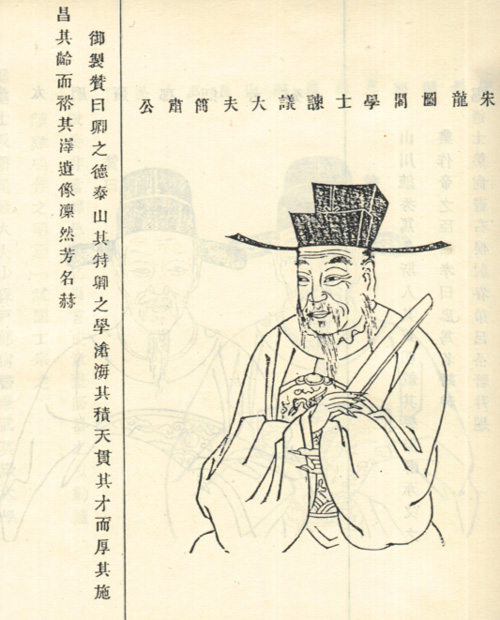 龍圖閣學士諫議大夫公
御製贊曰卿之德泰山其特卿之學滄海其積天貫其才而厚其施
昌其齡而裕其澤遺像凜然芳名赫